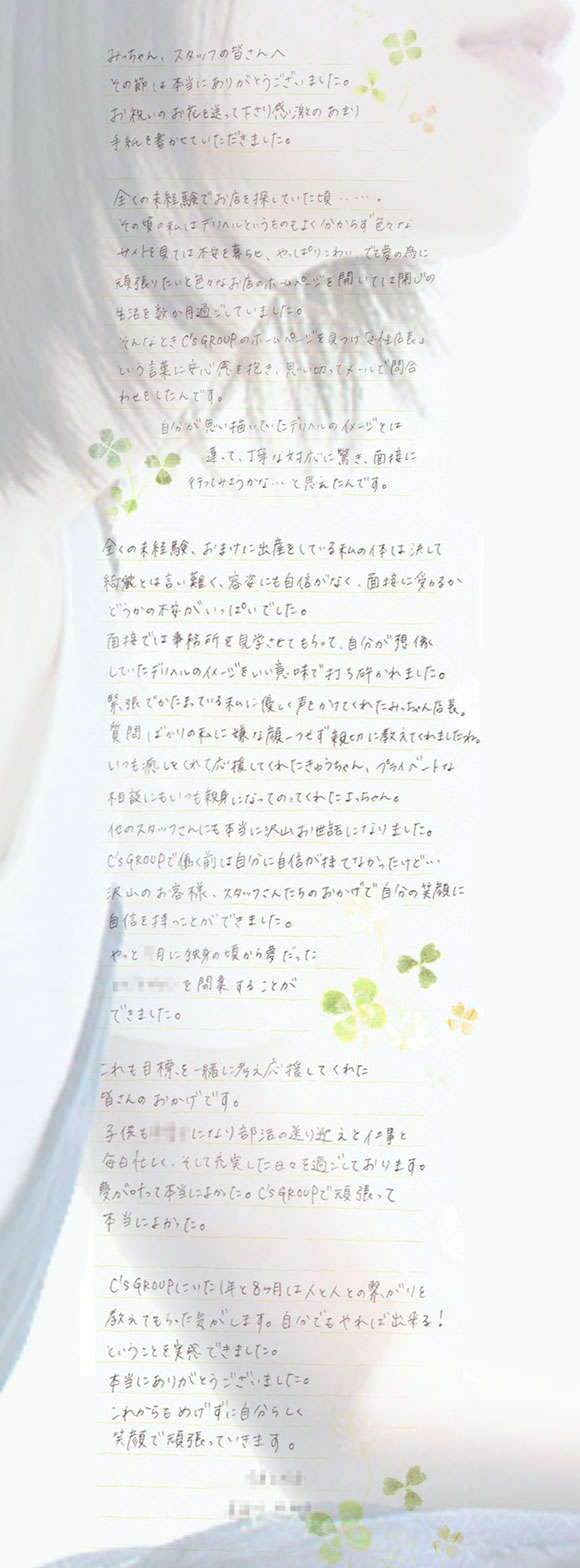 みっちゃん、スタッフの皆さんへ
その節は本当にありがとうございました。
お祝いのお花を送って下さり感激のあまり
手紙を書かせていただきました。
全くの未経験でお店を探していた頃……。
その頃の私はデリヘルというものもよく分からず色々な
サイトを見ては不安を募らせ、やっぱりこわい、でも夢の為に
頑張りたいと色々なお店のホームページを開いては閉じの
生活を数か月過ごしていました。
そんなときC'sGROUPのホームページを見つけ「女性店長」
という言葉に安心感を抱き、思い切ってメールで問合
わせをしたんです。
自分が思い描いていたデリヘルのイメージとは
違って、丁寧な対応に驚き、面接に
行ってみようかな…と思えたんです。
全くの未経験、おまけに出産をしている私の体は決して
綺麗とは言い難く、容姿にも自信がなく、面接に受かるか
どうかの不安がいっぱいでした。
面接では事務所を見学させてもらって、自分が想像
していたデリヘルのイメージをいい意味で打ち砕かれました。
緊張でかたまっている私に優しく声をかけてくれたみっちゃん店長。
質問ばかりの私に嫌な顔一つせず親切に教えてくれましたね。
いつも癒してくれて応援してくれたきゅうちゃん、プライベートな
相談にもいつも親身になってのってくれたよっちゃん。
他のスタッフさんにも本当に沢山お世話になりました。
C'sGROUPで働く前は自分に自信が持てなかったけど…
沢山のお客様、スタッフさんたちのおかげで自分の笑顔に
自信を持つことができました。
やっと 月に独身の頃から夢だった
を開業することが
できました。
これも目標を一緒に考え応援してくれた
皆さんのおかげです。
子供も になり部活の送り迎えと仕事と
毎日忙しく、そして充実した日々を過ごしております。
夢が叶って本当によかった。C'sGROUPで頑張って
本当によかった。
C'sGROUPにいた1年と8ヶ月は人と人との繋がりを
教えてもらった気がします。自分でもやれば出来る!
ということを実感できました。
本当にありがとうございました。
これからもめげずに自分らしく
笑顔で頑張っていきます。